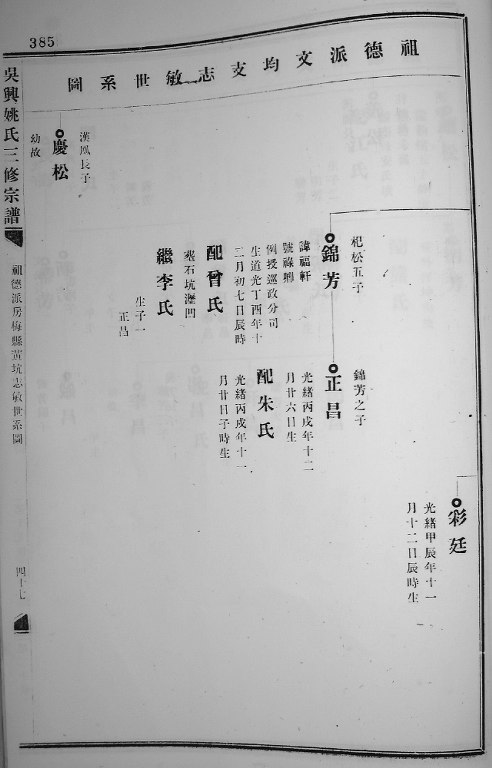 385
祖德派文均支志敏世系圖
彩廷
光緒甲辰年十一
月十二日辰時生
杞松五子
錦芳
諱福軒
例授巡政分司
生道光丁酉年十
二月初七日辰時
配曾氏
繼李氏
生子一
正昌
錦芳之子
正昌
光緒丙戌年十二
月廿六日生
配朱氏
光緒丙戌年十一
月廿日子時生
漢鳳長子
慶松
幼故
吳興姚氏三修宗譜
祖德派房梅縣黃坑志敏世系圖
四十七